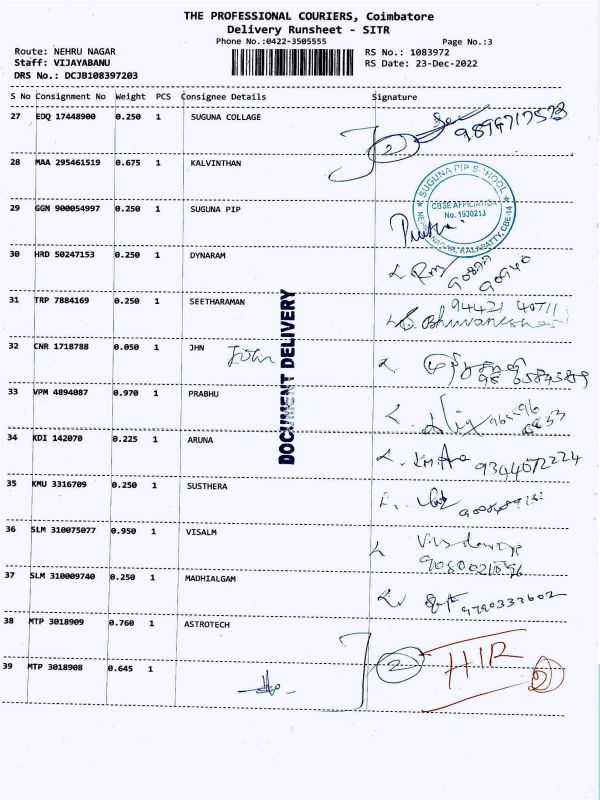 THE PROFESSIONAL COURIERS, Coimbatore
Delivery Runsheet - SITR
Phone No.:0422-3505555 Page No.:3
Route: NEHRU NAGAR RS No.: 1083972
Staff: VIJAYABANU RS Date: 23-Dec-2022
DRS No.: DCJB108397203
S No Consignment No Weight PCS Consignee Details Signature
27 EDQ 17448900 0.250 1 SUGUNA COLLAGE
2
28 MAA 295461519 0.675 1 KALVINTHAN
SUGUNA PIP SCHOOL
CBSE AFFILIATION
No. 1930213
29 GGN 900054997 0.250 1 SUGUNA PIP
30 HRD 50247153 0.250 1 DYNARAM
31 TRP 7884169 0.250 1 SEETHARAMAN
94421 40711
DOCUMENT DELIVERY
32 CNR 1718788 0.050 1 JHN John
33 VPM 4894087 0.970 1 PRABHU
34 KDI 142070 0.225 1 ARUNA
9344072224
35 KMU 3316709 0.250 1 SUSTHERA
36 SLM 310075077 0.950 1 VISALM
37 SLM 310009740 0.250 1 MADHIALGAM
9790333602
38 MTP 3018909 0.760 1 ASTROTECH
2 HIR 2
39 MTP 3018908 0.645 1